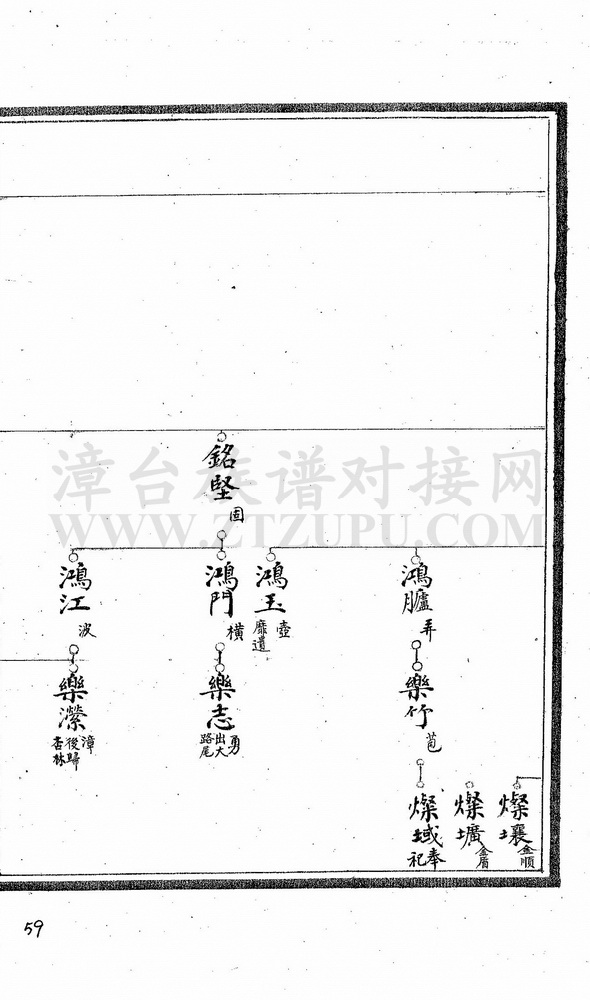 漳台族谱对接网
WWW.ZTZUPU.COM
銘堅
固
鴻臚
弄
鴻玉
壺
靡遺
鴻門
橫
鴻江
波
樂竹
苞
樂志
勇
出大
路尾
樂瀠
漳
後歸
杏林
燦壤
金順
燦壙
金盾
燦域
奉祀
59